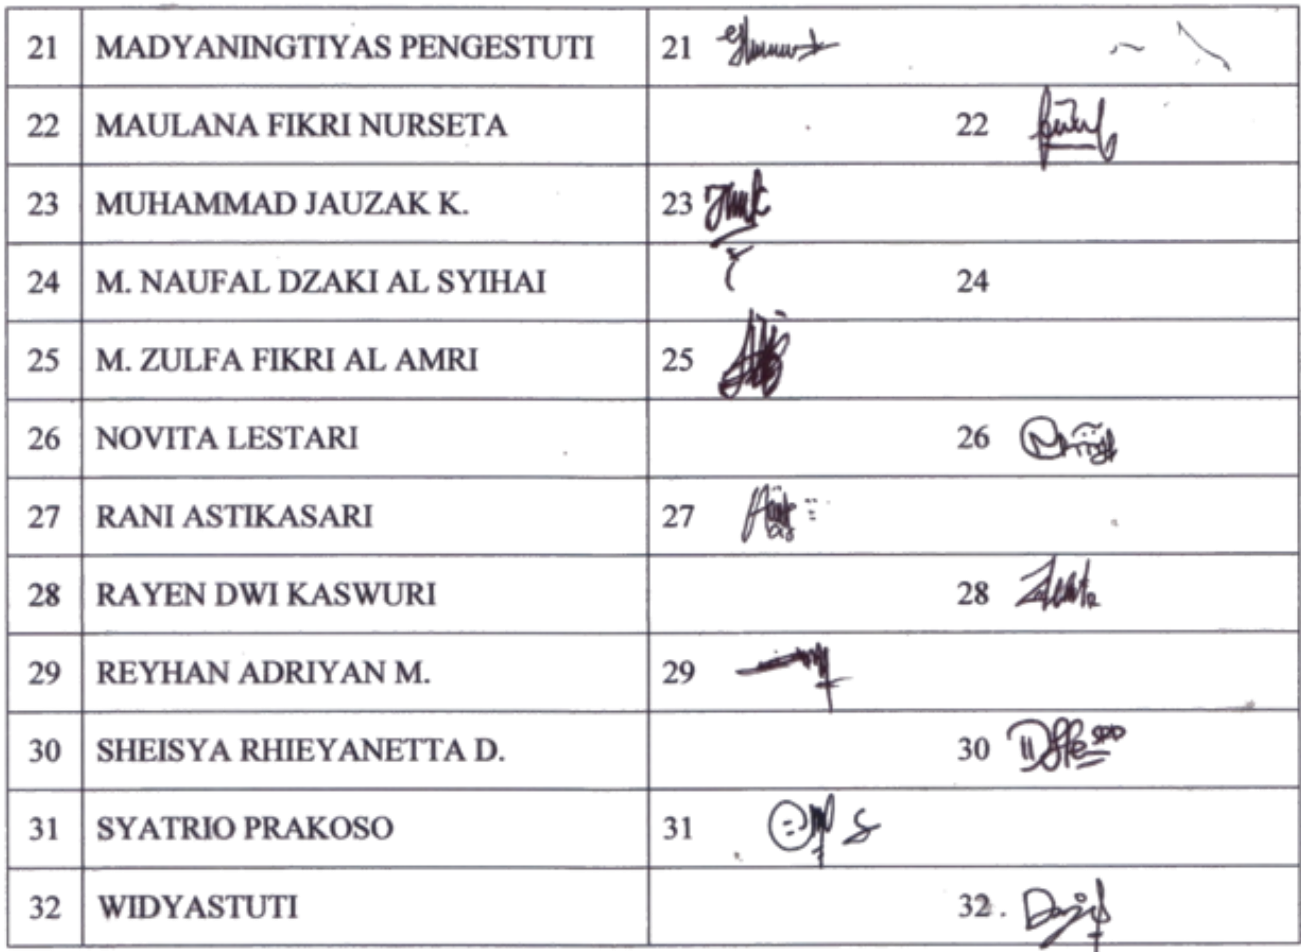 21 MADYANINGTIYAS PENGESTUTI 21
22 MAULANA FIKRI NURSETA 22
23 MUHAMMAD JAUZAK K. 23
24 M. NAUFAL DZAKI AL SYIHAI 24
25 M. ZULFA FIKRI AL AMRI 25
26 NOVITA LESTARI 26
27 RANI ASTIKASARI 27
28 RAYEN DWI KASWURI 28
29 REYHAN ADRIYAN M. 29
30 SHEISYA RHIEYANETTA D. 30
31 SYATRIO PRAKOSO 31
32 WIDYASTUTI 32.